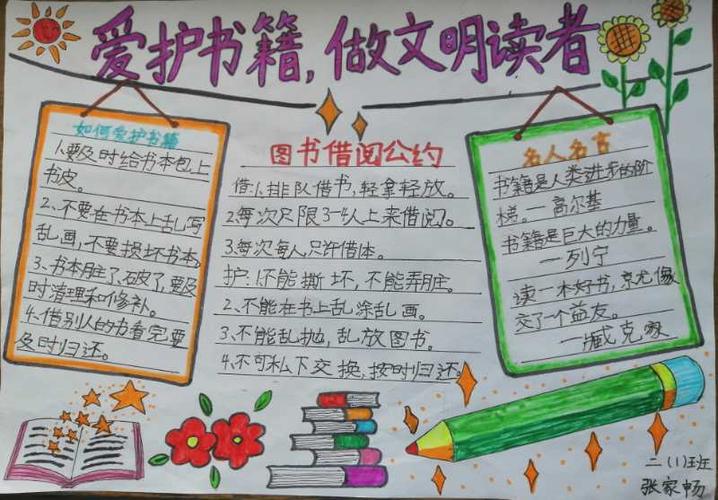 爱护书籍,做文明读者
如何爱护书籍
1.要及时给书本包上
书皮。
2、不要在书本上乱写
乱画,不要损坏书本。
3、书本脏了、破了,要及
时清理和修补。
4.借别人的书看完要
及时归还。
图书借阅公约
借:1、排队借书,轻拿轻放。
2.每次只限3-4人上来借阅。
3.每次每人只许借1本。
护:1.不能撕坏,不能弄脏。
2、不能在书上乱涂乱画。
3、不能乱抛,乱放图书。
4、不可私下交换,按时归还。
名人名言
书籍是人类进步的阶
梯。一高尔基
书籍是巨大的力量。
一列宁
读一本好书,就像
交了一个益友。
一臧克家
二(1)班
张家畅